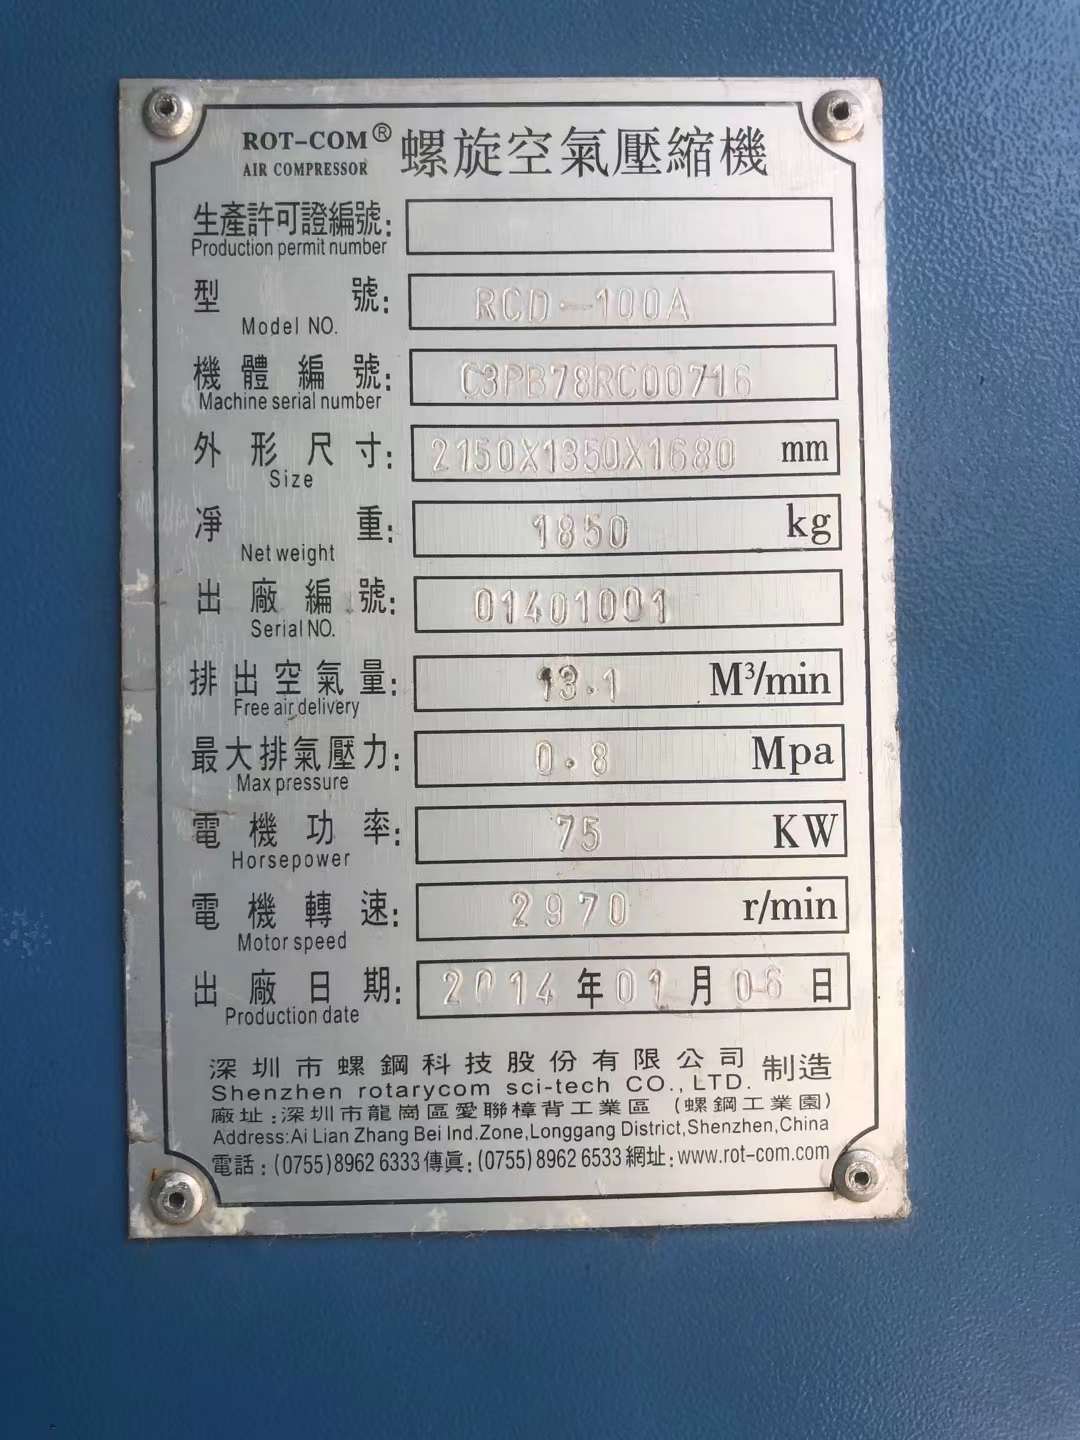 ROT-COM® 螺旋空氣壓縮機
AIR COMPRESSOR
生產許可證編號:
Production permit number
型 號: RCD-100A
Model NO.
機體編號: C3PB78RC00716
Machine serial number
外形尺寸: 2150X1350X1680 mm
Size
凈 重: 1850 kg
Net weight
出廠編號: 01401001
Serial NO.
排出空氣量: 13.1 M³/min
Free air delivery
最大排氣壓力: 0.8 Mpa
Max pressure
電機功率: 75 KW
Horsepower
電機轉速: 2970 r/min
Motor speed
出廠日期: 2014年01月06日
Production date
深圳市螺鋼科技股份有限公司 制造
Shenzhen rotarycom sci-tech CO., LTD.
廠址:深圳市龍崗區愛聯樟背工業區 (螺鋼工業園)
Address:Ai Lian Zhang Bei Ind.Zone,Longgang District,Shenzhen,China
電話:(0755)8962 6333 傳眞:(0755)8962 6533 網址:www.rot-com.com